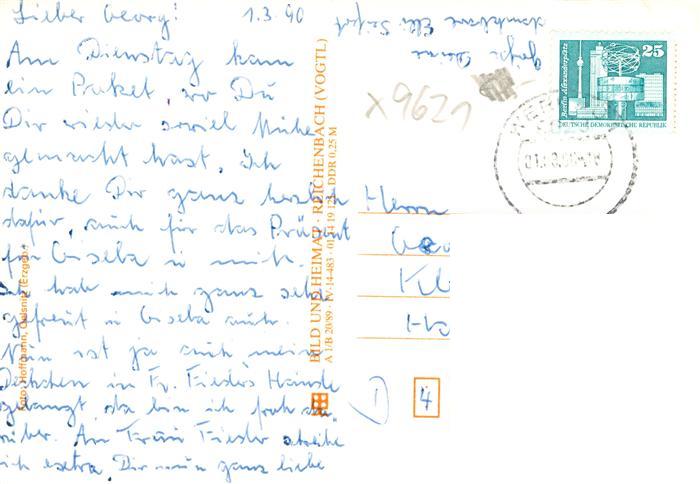 Lieber Georg! 1.3.90
Am Dienstag kam
ein Paket, wo Du
Dir wieder soviel Mühe
gemacht hast. Ich
danke Dir ganz herzlich
dafür, auch für das Präsent
für Gisela u mich.
Ich hab mich ganz sehr
gefreut u Gisela auch.
Nun ist ja auch mein
in Fr. Fieders Hände
gelangt, da bin ich froh da-
rüber. An Frau Fieder schreibe
ich extra. Dir nun ganz liebe
Grüße Deine
dankbare Elli
Foto: Hoffmann, Oelsnitz (Erzgeb.)
BILD UND HEIMAT · REICHENBACH (VOGTL)
A 1/B 20/89 · IV-14-483 · 01 14 19 123 · DDR 0,25 M
X9621
25
Berlin, Alexanderplatz
DEUTSCHE DEMOKRATISCHE REPUBLIK
Herrn
D
4